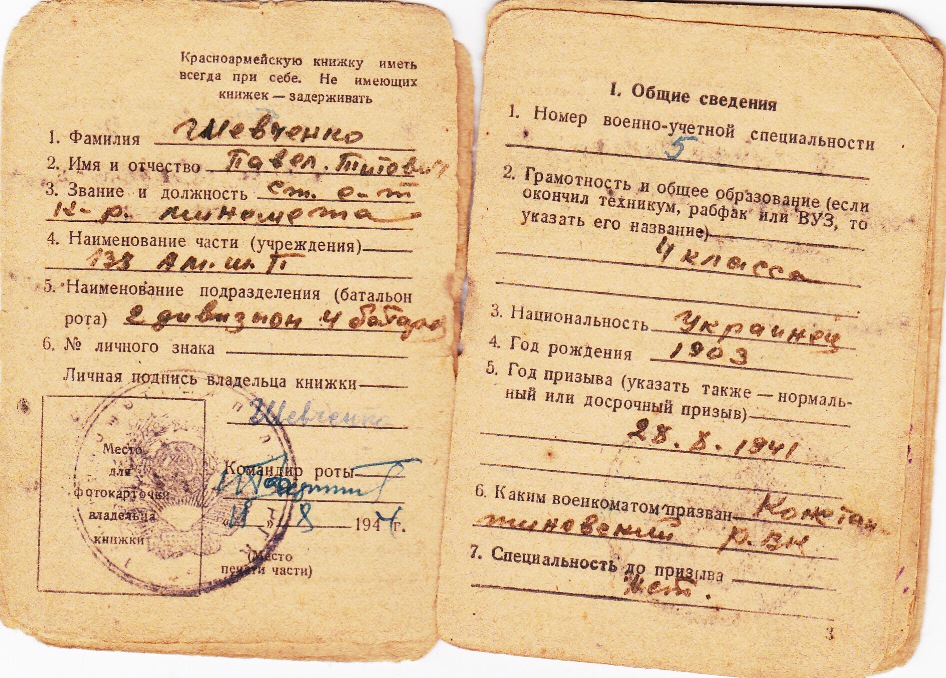 Красноармейскую книжку иметь
всегда при себе. Не имеющих
книжек — задерживать
1. Фамилия Шевченко
2. Имя и отчество Павел. Титович
3. Звание и должность ст. с-т
К-р. миномета
4. Наименование части (учреждения)
138 Ам.ш.П
5. Наименование подразделения (батальон
рота) 2 дивизион 4 батаре
6. № личного знака
Личная подпись владельца книжки
Шевченко
Место
для
фотокарточки
владельца
книжки
Командир роты
"11" 8 1944 г.
(Место
печати части)
I. Общие сведения
1. Номер военно-учетной специальности
5
2. Грамотность и общее образование (если
окончил техникум, рабфак или ВУЗ, то
указать его название)
4 класса
3. Национальность Украинец
4. Год рождения 1903
5. Год призыва (указать также — нормаль-
ный или досрочный призыв)
28. 8. 1941
6. Каким военкоматом призван Констан-
тиновский р.вк
7. Специальность до призыва
3